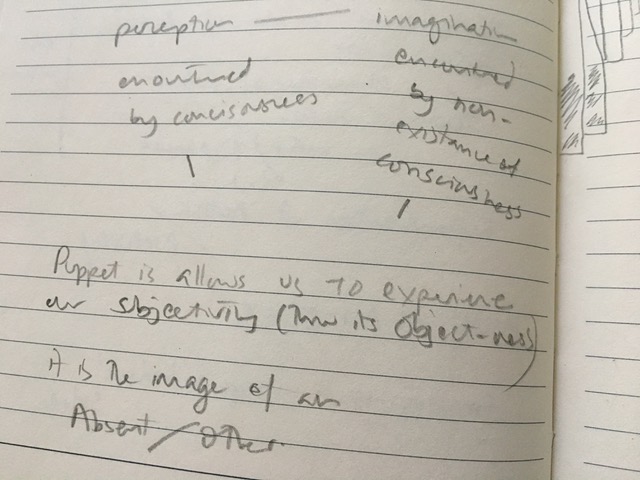 perception — imagination
encountered encountered
by conciousness by non-
existance of
consciousness
Puppet is allows us to experience
our subjectivity (thru its Object-ness)
it is the image of an
Absent/Other